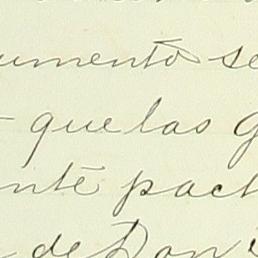 umento se
que las g
nte pact
de Don